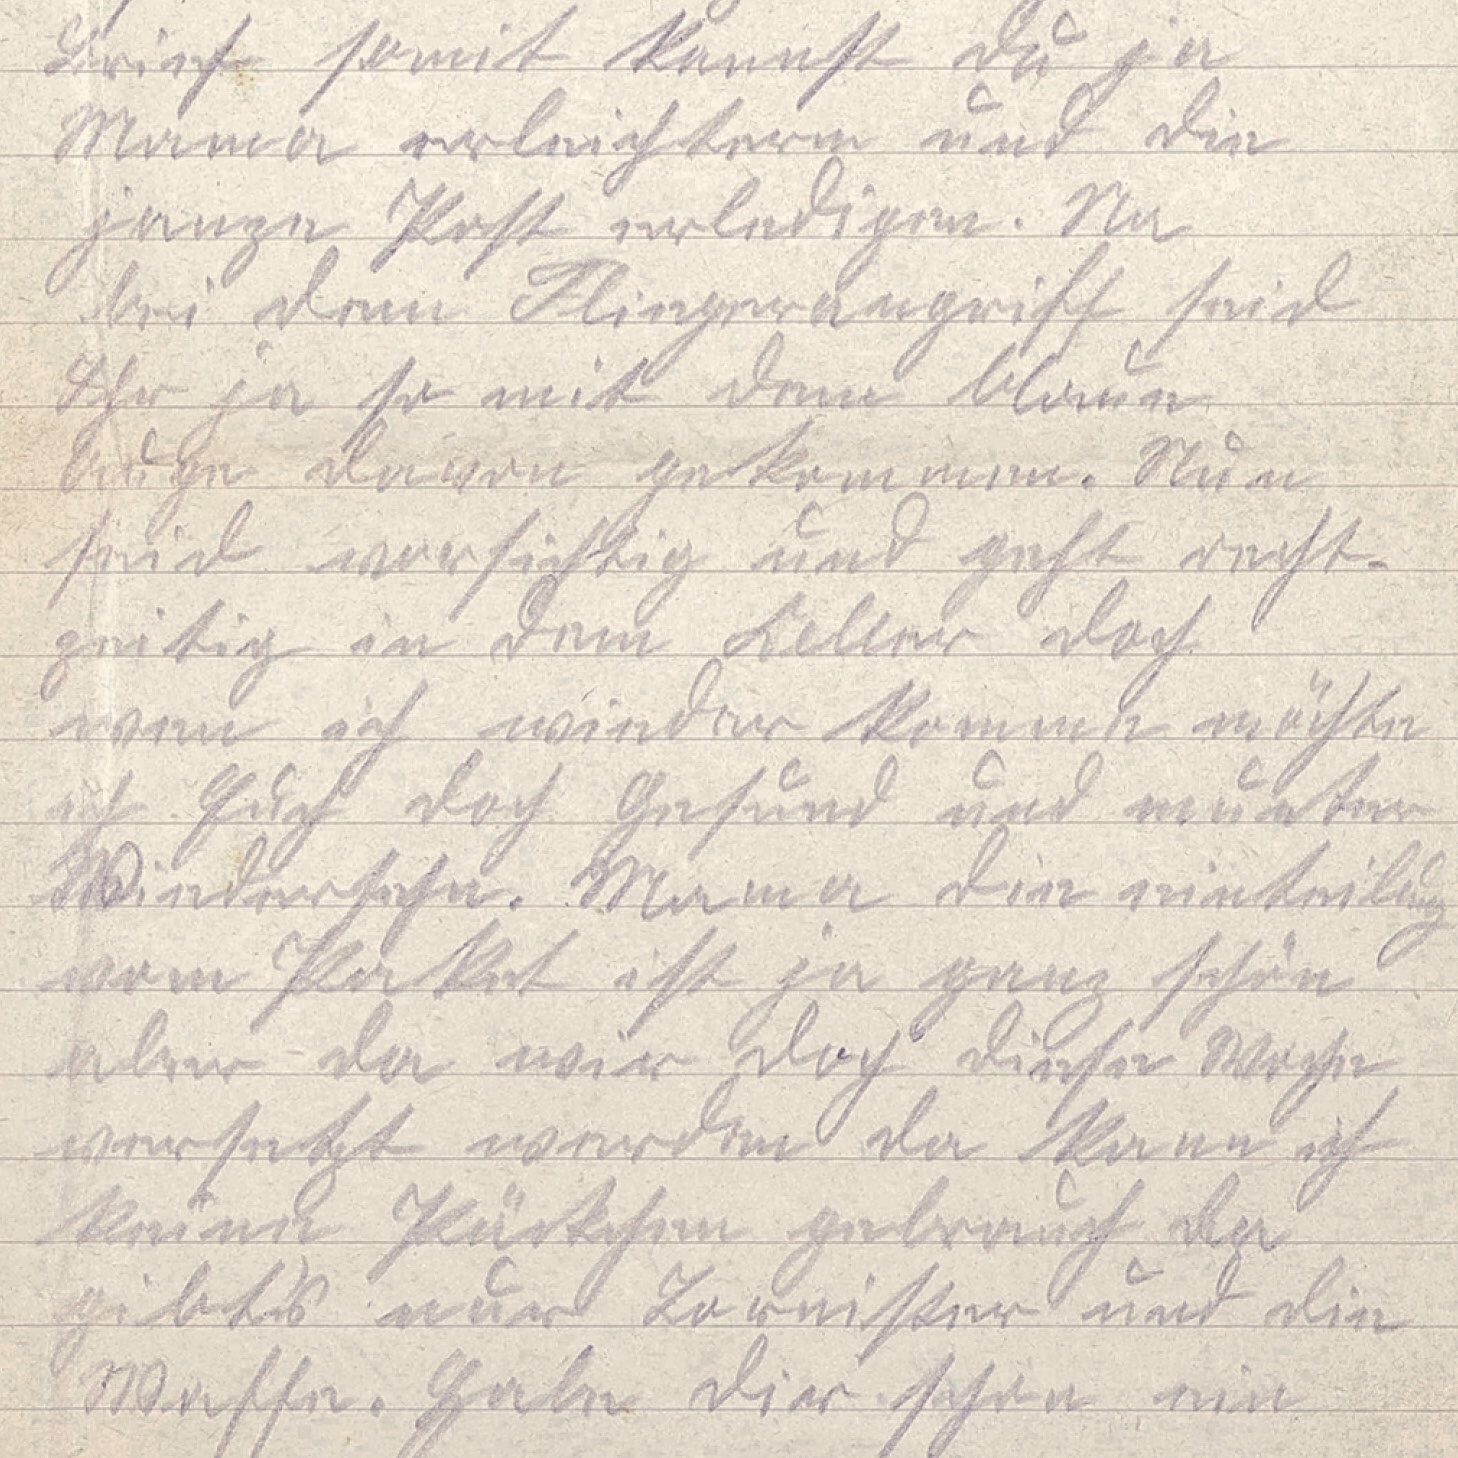 Brief somit kannst du ja
Mama erleichtern und die
ganze Post erledigen. Na
bei dem Fliegerangriff seid
Ihr ja so mit dem blauen
auge davon gekommen. Nun
seid vorsichtig und geht recht-
zeitig in dem Keller doch
wenn ich wieder komme möchte
ich Euch doch Gesund und munter
Wiedersehn. Mama die einteilung
vom Paket ist ja ganz schön
aber da wir doch diese Woche
versetzt werden da kann ich
keine Päckchen gebrauch da
gibts nur Tornister und die
Waffe. Habe dir schon ein